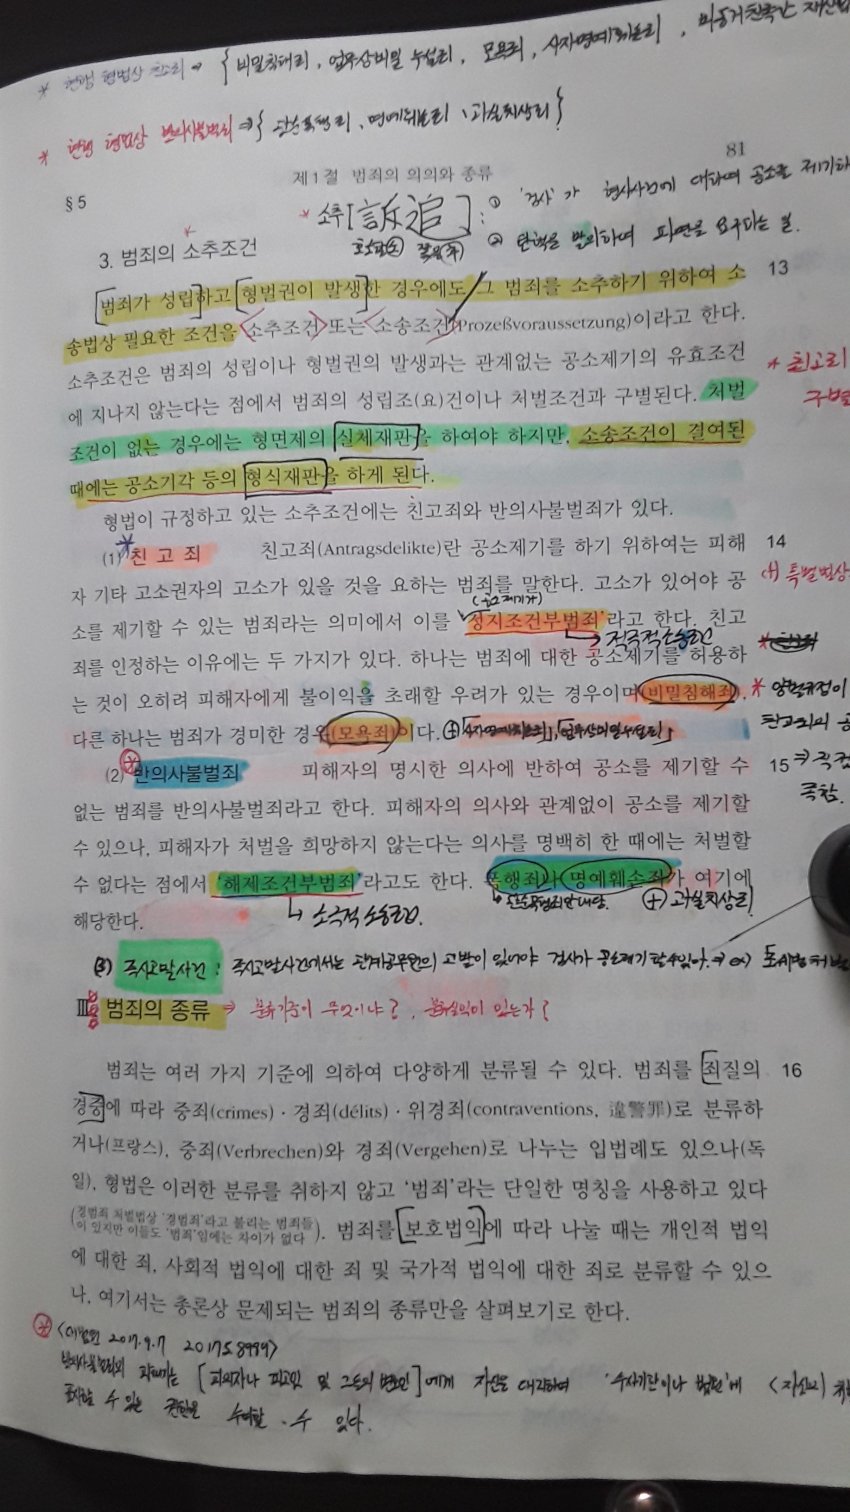 * 현행 형법상 친고죄 ⇒ { 비밀침해죄, 업무상비밀누설죄, 모욕죄, 사자명예훼손죄,
* 현행 형법상 반의사불벌죄 ⇒ { 명예훼손죄, 과실치상죄 }
81
제1절 범죄의 의의와 종류
§5
* 소추[訴追] : ① '검사'가 형사사건에 대하여 공소를 제기하
② 탄핵을 발의하여 파면을 요구하는 일.
3. 범죄의 소추조건
범죄가 성립하고 형벌권이 발생한 경우에도 그 범죄를 소추하기 위하여 소 13
송법상 필요한 조건을 소추조건 또는 소송조건(Prozeßvoraussetzung)이라고 한다.
소추조건은 범죄의 성립이나 형벌권의 발생과는 관계없는 공소제기의 유효조건
* 친고죄
에 지나지 않는다는 점에서 범죄의 성립조(요)건이나 처벌조건과 구별된다. 처벌
구별
조건이 없는 경우에는 형면제의 실체재판을 하여야 하지만, 소송조건이 결여된
때에는 공소기각 등의 형식재판을 하게 된다.
형법이 규정하고 있는 소추조건에는 친고죄와 반의사불벌죄가 있다.
(1) 친 고 죄 친고죄(Antragsdelikte)란 공소제기를 하기 위하여는 피해 14
자 기타 고소권자의 고소가 있을 것을 요하는 범죄를 말한다. 고소가 있어야 공
특별법상
(공소제기가)
소를 제기할 수 있는 범죄라는 의미에서 이를 '정지조건부범죄'라고 한다. 친고
적극적 소송조건
죄를 인정하는 이유에는 두 가지가 있다. 하나는 범죄에 대한 공소제기를 허용하
는 것이 오히려 피해자에게 불이익을 초래할 우려가 있는 경우이며(비밀침해죄),
* 양벌규정이
다른 하나는 범죄가 경미한 경우(모욕죄)이다. ⊕「사자명예훼손죄」,「업무상비밀누설죄」
친고죄의
(2) 반의사불벌죄 피해자의 명시한 의사에 반하여 공소를 제기할 수 15
없는 범죄를 반의사불벌죄라고 한다. 피해자의 의사와 관계없이 공소를 제기할
수 있으나, 피해자가 처벌을 희망하지 않는다는 의사를 명백히 한 때에는 처벌할
수 없다는 점에서 '해제조건부범죄'라고도 한다. 폭행죄나 명예훼손죄가 여기에
해당한다.
↳ 소극적 소송조건.
⊕ 과실치상죄
(3) 즉시고발사건 : 즉시고발사건에서는 관계공무원의 고발이 있어야 검사가 공소제기 할 수 있어. ⇒ ex) 조세범처벌
Ⅲ. 범죄의 종류 ⇒ 분류기준이 무엇이냐?, 분류실익이 있는가?
범죄는 여러 가지 기준에 의하여 다양하게 분류될 수 있다. 범죄를 죄질의 16
경중에 따라 중죄(crimes)·경죄(délits)·위경죄(contraventions, 違警罪)로 분류하
거나(프랑스), 중죄(Verbrechen)와 경죄(Vergehen)로 나누는 입법례도 있으나(독
일), 형법은 이러한 분류를 취하지 않고 '범죄'라는 단일한 명칭을 사용하고 있다
(경범죄 처벌법상 '경범죄'라고 불리는 범죄들
이 있지만 이들도 '범죄'임에는 차이가 없다). 범죄를 보호법익에 따라 나눌 때는 개인적 법익
에 대한 죄, 사회적 법익에 대한 죄 및 국가적 법익에 대한 죄로 분류할 수 있으
나, 여기서는 총론상 문제되는 범죄의 종류만을 살펴보기로 한다.
* <대법원 2017.9.7 2017도8999>
반의사불벌죄의 피해자는 [피의자나 피고인 및 그들의 변호인]에게 자신을 대리하여 '수사기관이나 법원'에 <자신의
표시할 수 있는 권한을 수여할 수 있다.